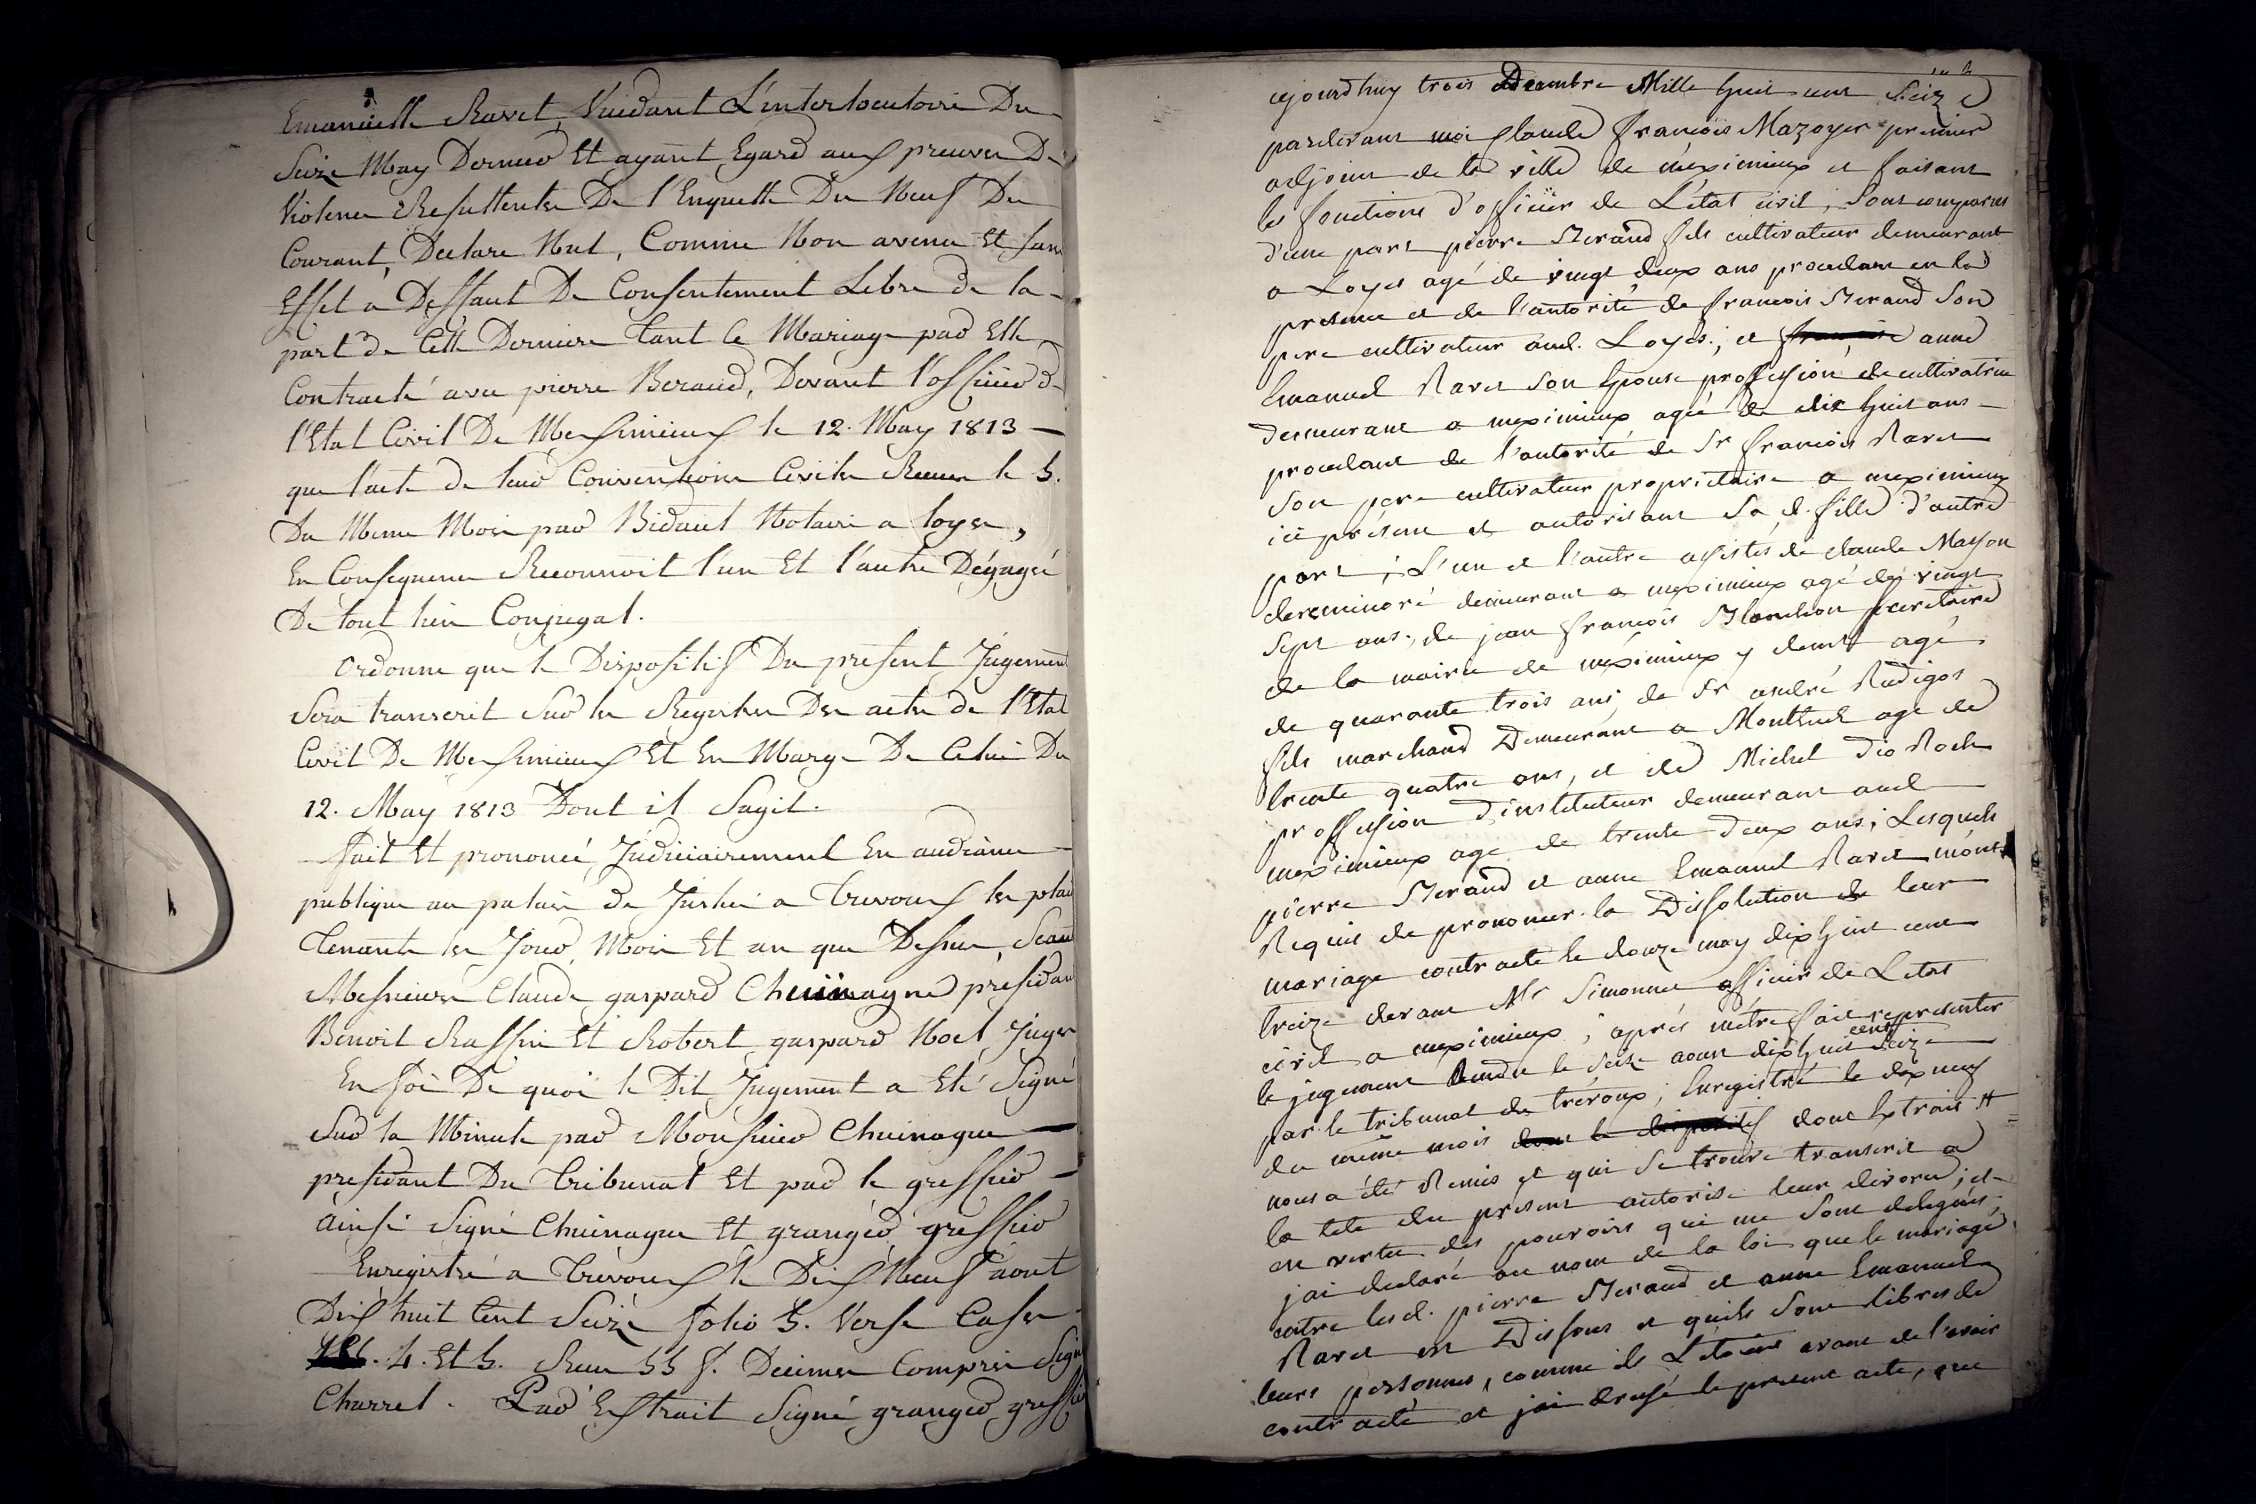 Emanuëlle Ravet, Vuidant L'interlocutoire Du
Seize May Dernier Et ayant Egard aux preuves De
Violence Resultantes De l'Enquette Du Neuf Du
Courant, Declare Nul, Comme Non avenu Et sans
Effet a Deffaut De Consentement Libre de la
part de Cette Derniere tant le Mariage par Elle
Contracté avec pierre Beraud, Devant l'officier de
l'Etat Civil De Meximieux le 12. May 1813 —
que l'acte de leurs Conventions Civiles Recues le 5.
Du Meme Mois par Bidault Notaire a loyes,
En Consequence Reconnoit l'un Et l'autre Dégagés
De tout lien Conjugal.
Ordonne que le Dispositif Du present Jugement
Sera transcrit Sur les Registres Des actes de l'Etat
Civil De Meximieux Et En Marge De Celui Du
12. May 1813 Dont il Sagit.
fait Et prononcé Judiciairement En audiance
publique au palais de Justice a Trevoux les plaids
tenants les Jour, Mois Et an que Dessus, Seants
Messieurs Claude gaspard Chuinague présidant
Benoit Raffin Et Robert gaspard Noel, Juges
En foi De quoi le Dit Jugement a Eté Signé
Sur la Minute par Monsieur Chuinague —
presidant Du tribunal Et par le greffier —
ainsi Signé Chuinague Et granger greffier
Enregistré a Trevoux le Dix Neuf aout
Dix huit Cent Seize folio 5. Verso Cases
4. Et 5. Recu 55 f. Decimes Compris Signé
Charrel. Par Extrait Signé granger greffier
cejourdhuy trois Decembre Mille huit cent Seize
pardevant moi Claude françois Mazoyer premier
adjoint de la ville de meximieux et faisant
les fonctions d'officier de L'état civil, Sont comparus
d'une part pierre Beraud fils cultivateur demeurant
a Loyes agé de vingt deux ans procedant en la
presence et de l'autorité de françois Beraud Son
pere cultivateur aud. Loyes; et françoise anne
Emanuel Ravet Son Epouse proffession de cultivatrice
demeurant a meximieux agée de dix huit ans —
procedant de l'autorité de Sr françois Ravet
Son pere cultivateur proprietaire a meximieux
ici present et autorisant Sa d. fille d'autre
part; L'un et l'autre assistés de claude Masson
demeurant a meximieux agé de vingt
Sept ans, de jean françois Blanchon secretaire
de la mairie de meximieux y demt agé
de quarante trois ans, de Sr andré Rudigoz
fils marchand Demeurant a Montluel agé de
trente quatre ans, et de Michel Roche
proffession d'instituteur demeurant aud
meximieux agé de trente deux ans; Lesquels
pierre Beraud et anne Emanuel Ravet m'ont
Requis de prononcer la Dissolution de leur
mariage contracté le douze may dix huit cent
treize devant Mr Simonnet officier de Letat
civil a meximieux; après m'être fait representer
le jugement Rendu le Seize aout dix huit cent Seize
par le tribunal de trévoux, Enregistré le dix neuf
du même mois dont le dispositif dont Extrait #
nous a été Remis et qui se trouve transcrit a
la tete du present autorise leur divorce; et
en vertu des pouvoirs qui me Sont delegués,
jai declaré au nom de la loi que le mariage
entre lesd. pierre Beraud et anne Emanuel
Ravet est Dissous et quils Sont libres de
leurs personnes, comme ils L'étoient avant de l'avoir
contracté et jai dressé le present acte, que